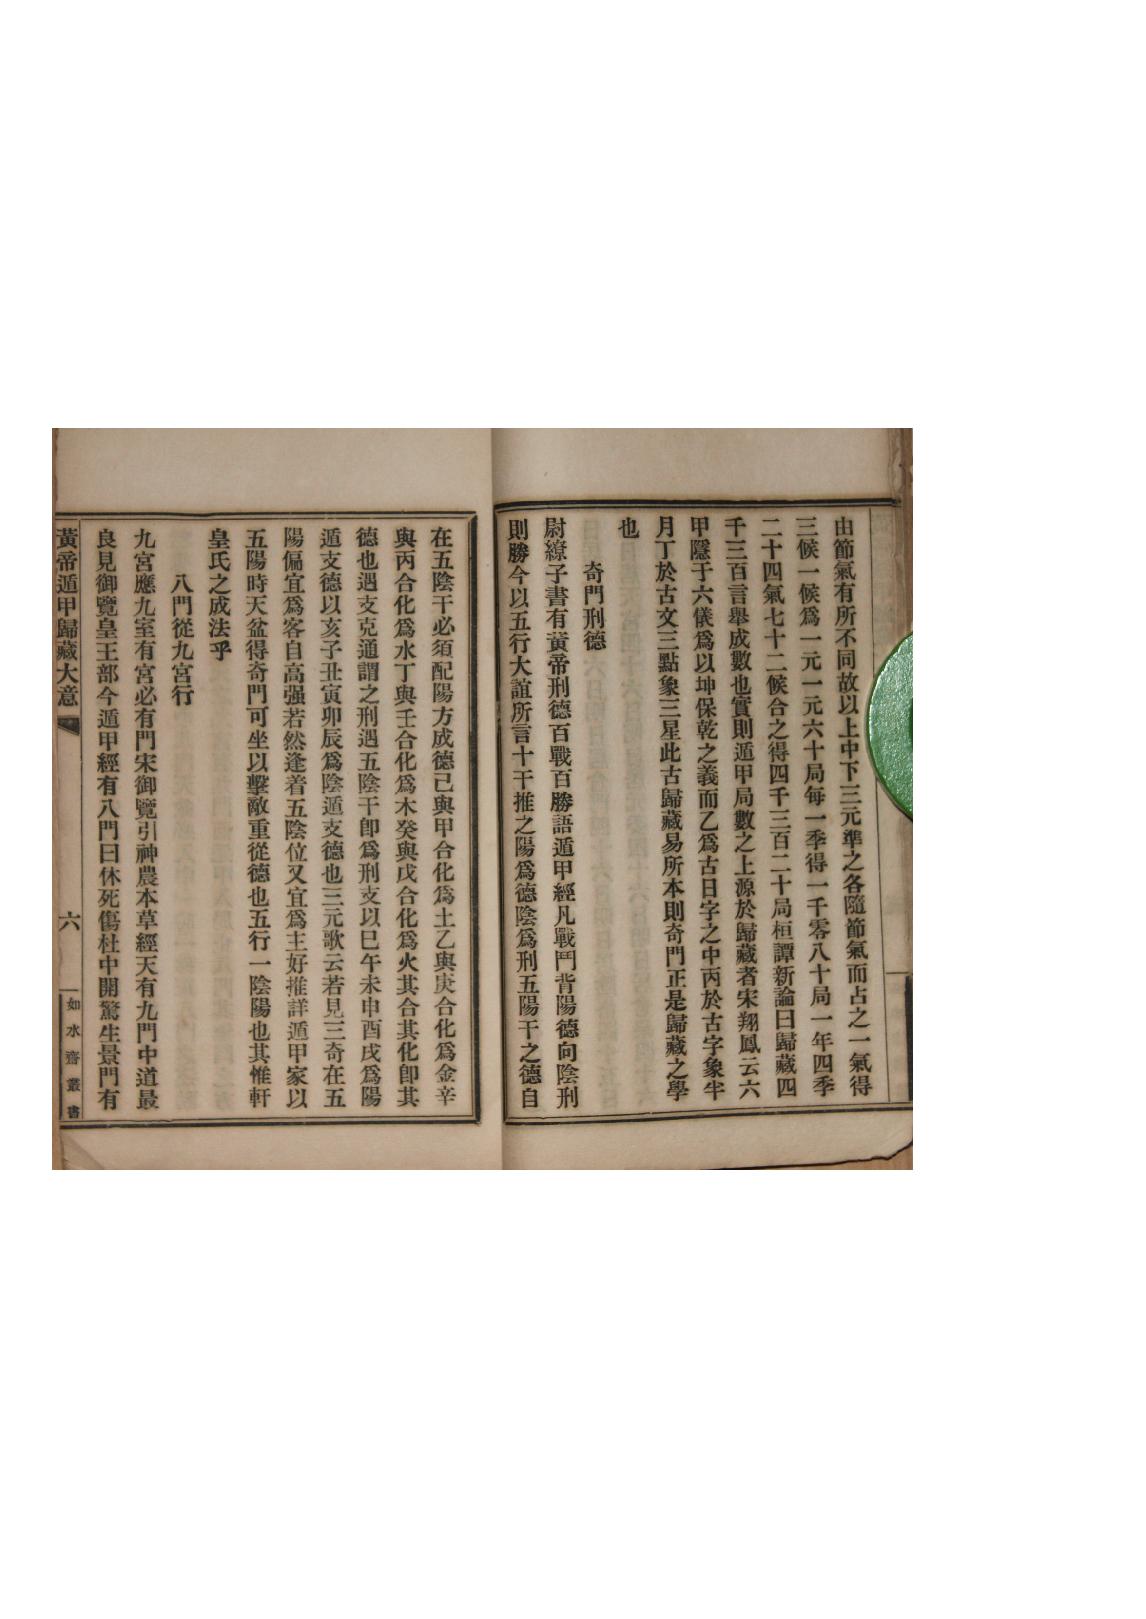 由節氣有所不同故以上中下三元準之各隨節氣而占之一氣得
三候一候爲一元一元六十局每一季得一千零八十局一年四季
二十四氣七十二候合之得四千三百二十局桓譚新論曰歸藏四
千三百言舉成數也實則遁甲局數之上源於歸藏者宋翔鳳云六
甲隱于六儀爲以坤保乾之義而乙爲古日字之中丙於古字象半
月丁於古文三點象三星此古歸藏易所本則奇門正是歸藏之學
也
奇門刑德
尉繚子書有黃帝刑德百戰百勝語遁甲經凡戰鬥背陽德向陰刑
則勝今以五行大誼所言十干推之陽爲德陰爲刑五陽干之德自
在五陰干必須配陽方成德己與甲合化爲土乙與庚合化爲金辛
與丙合化爲水丁與壬合化爲木癸與戊合化爲火其合其化卽其
德也遇支克通謂之刑遇五陰干卽爲刑支以巳午未申酉戌爲陽
遁支德以亥子丑寅卯辰爲陰遁支德也三元歌云若見三奇在五
陽偏宜爲客自高强若然逢着五陰位又宜爲主好推詳遁甲家以
五陽時天盆得奇門可坐以擊敵重從德也五行一陰陽也其惟軒
皇氏之成法乎
八門從九宮行
九宮應九室有宮必有門宋御覽引神農本草經天有九門中道最
良見御覽皇王部今遁甲經有八門曰休死傷杜中開驚生景門有
黃帝遁甲歸藏大意
六
如水齋叢書